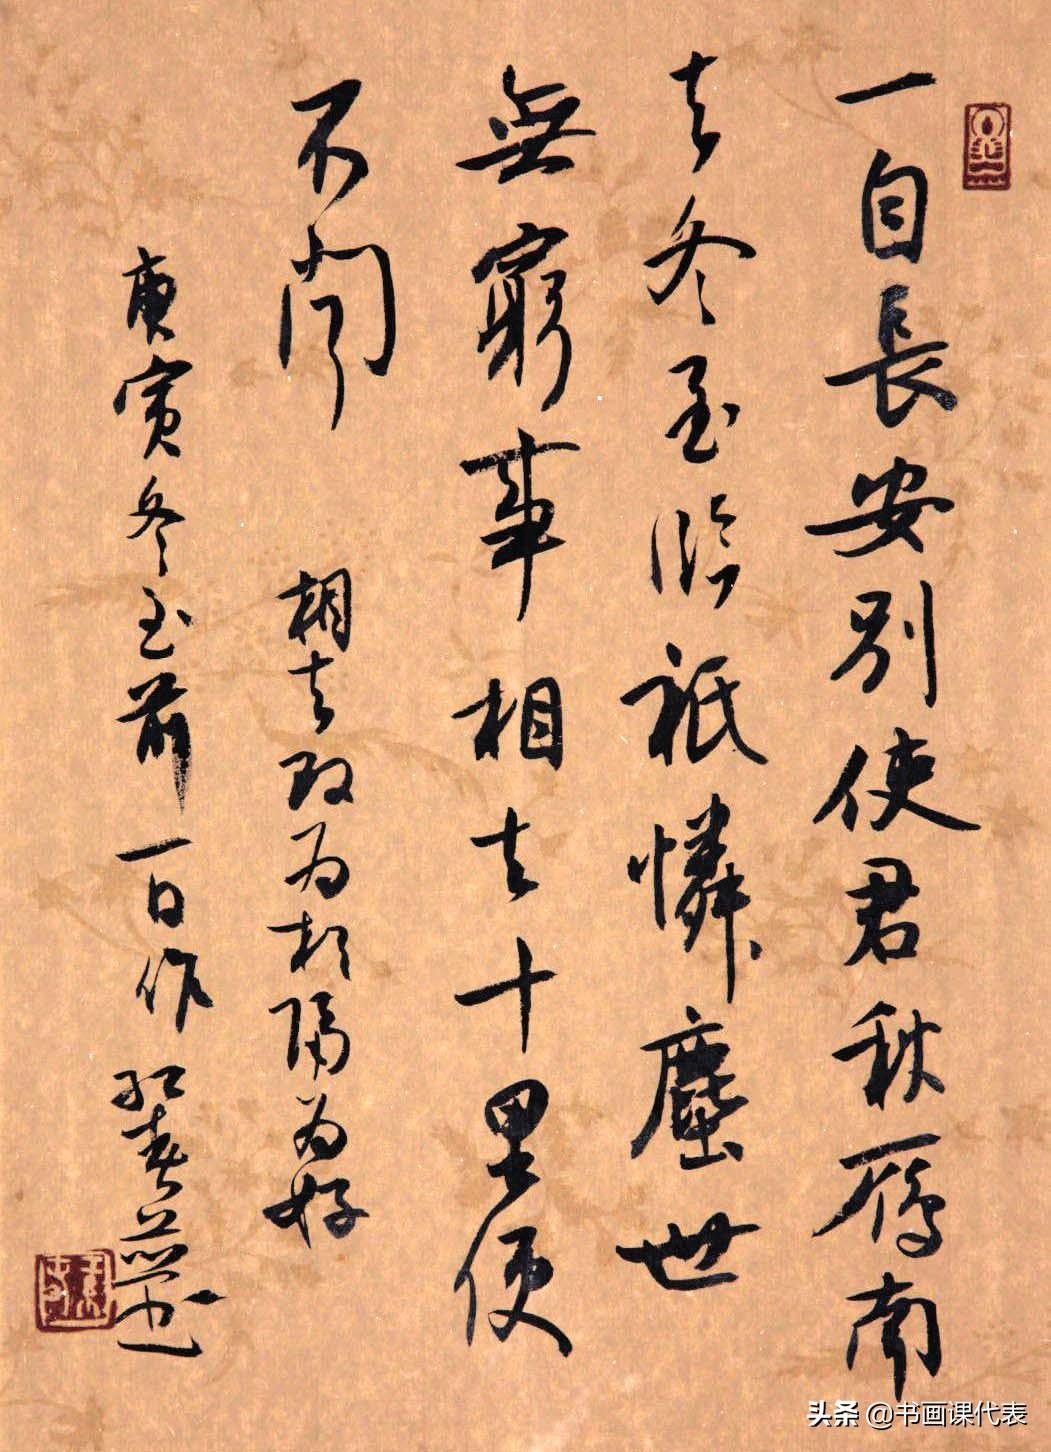 一自長安別使君秋雁南
去冬至臨祇憐塵世
無窮事相去十里便
不聞
相去改為相隔為好
庚寅冬至前一日作
头条 @书画课代表